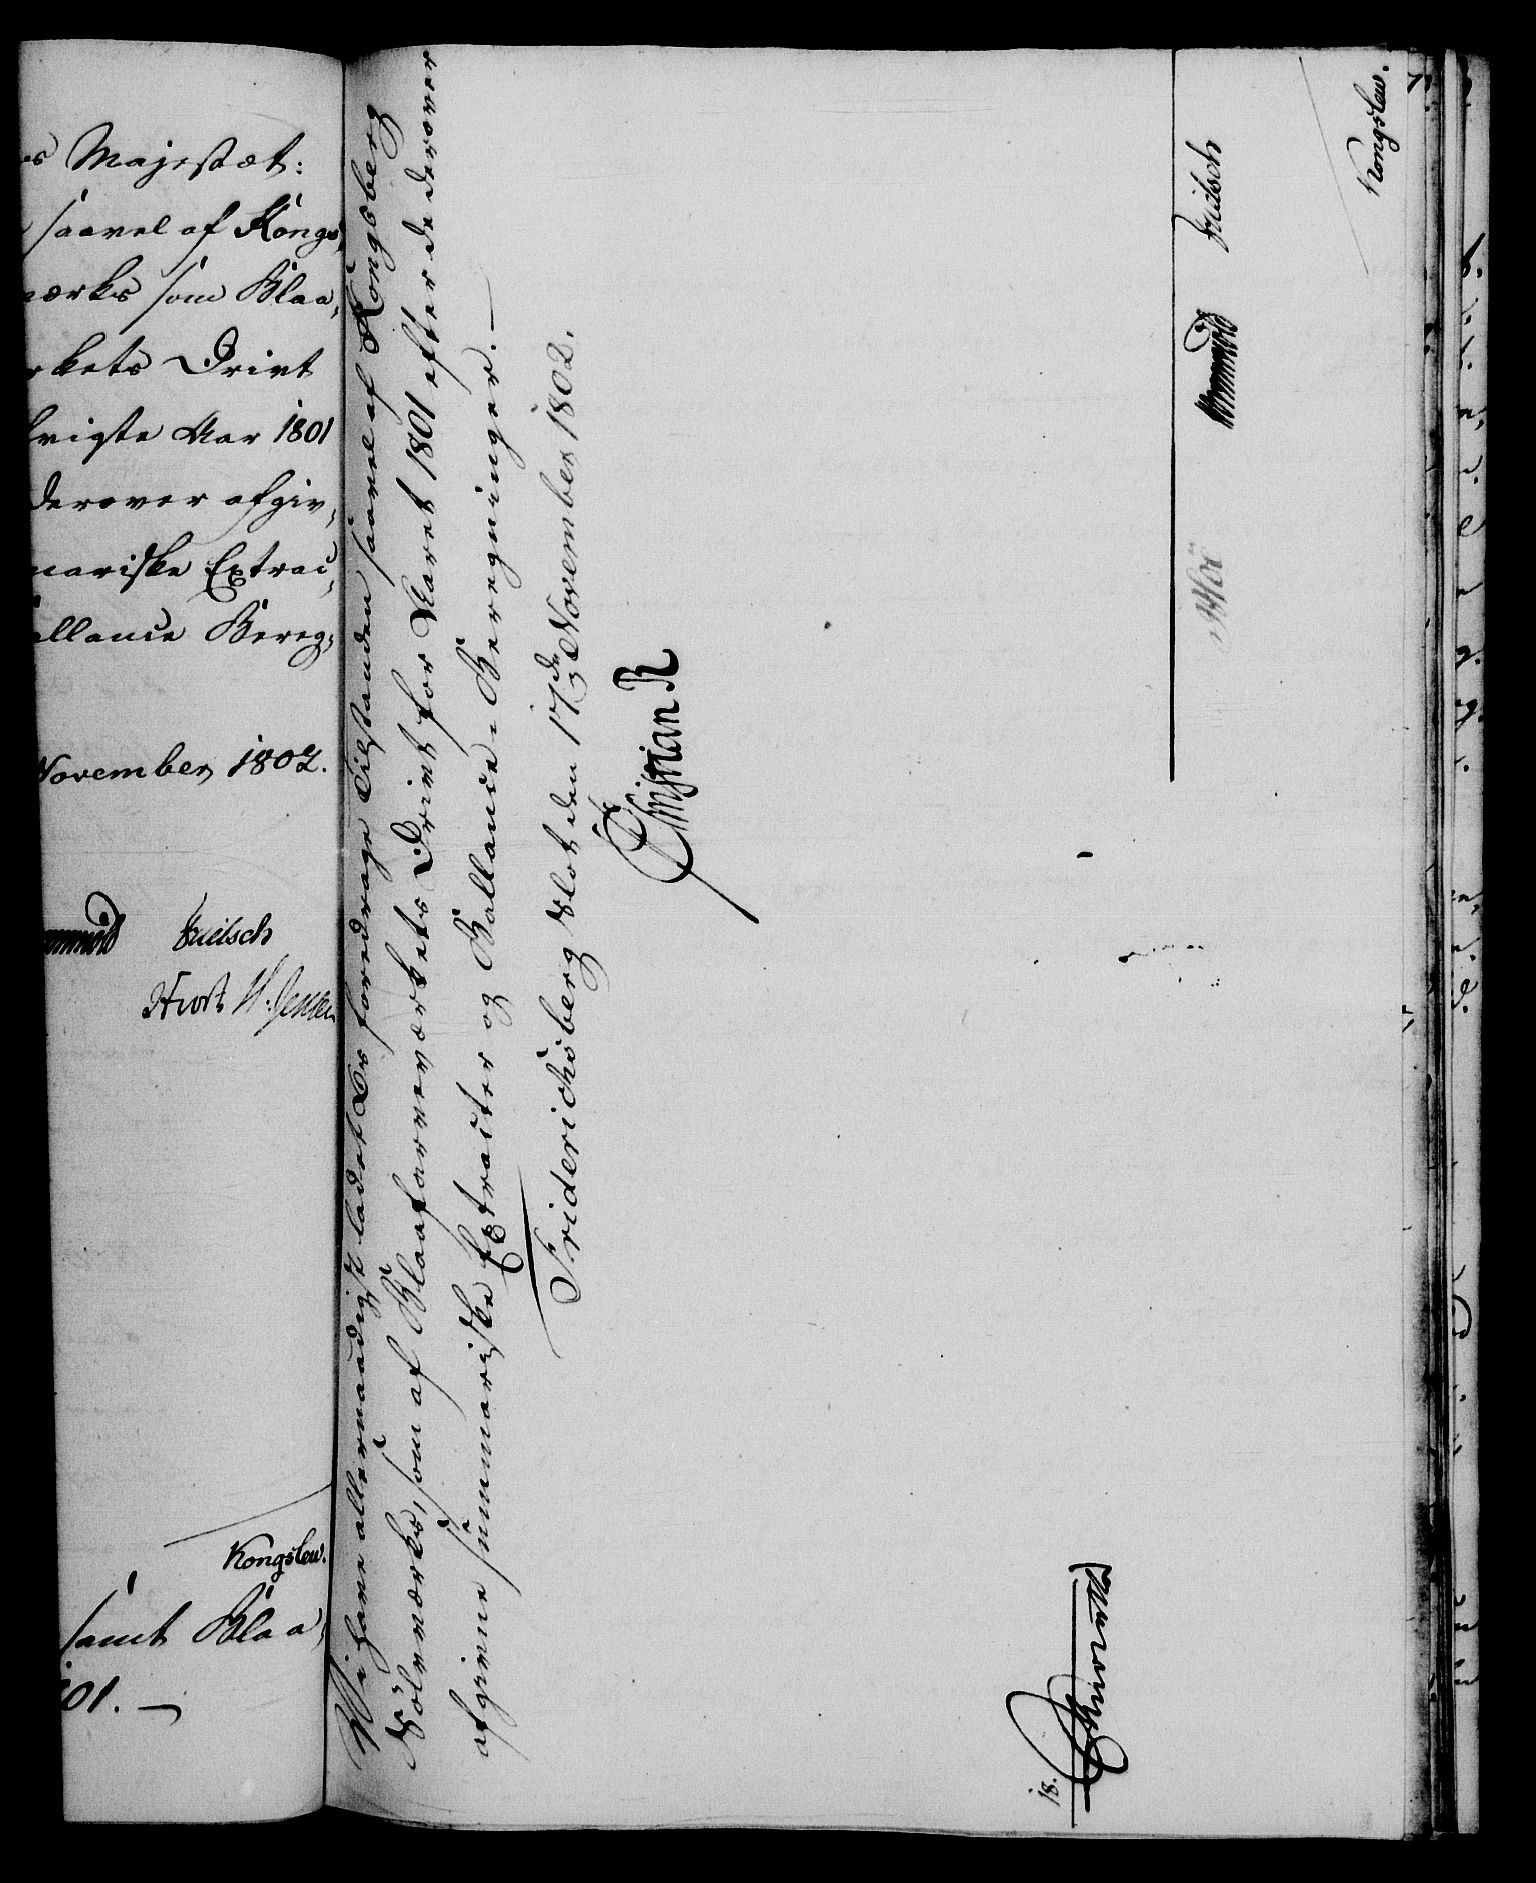 Majestæt:
saavel af Kongs,
værks som Blaa,
rkets Drivt
Aar 1801
derover afgiv,
mariske Extrac,
allance Bereg,
November 1802.
Fridsch
Kongslew.
samt Blaa,
01. —
Vi have allernaadigst ladet Os foredrage Tilstanden saavel af Kongsberg
Sølvværks, som af Blaafarveværkets Drivt for Aaret 1801 efter de derover
afgivne summariske Extracter og Ballance-Beregninger. —
Friderichsberg Slot den 17de November 1802.
Christian R
Fridsch
Kongslew.
18.